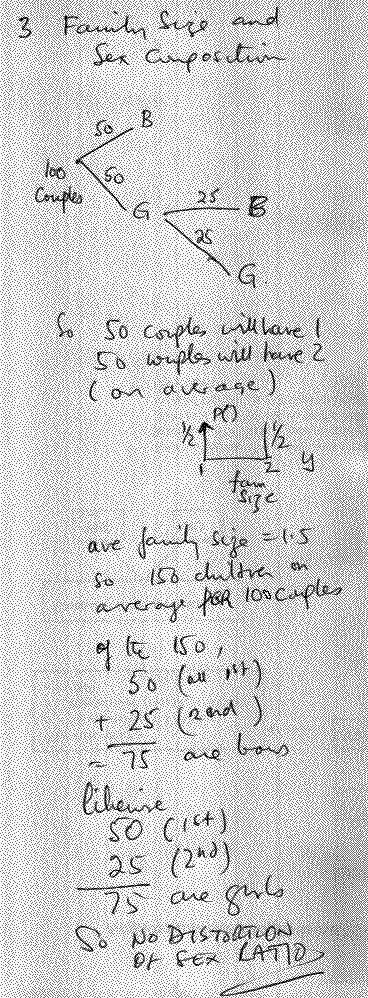 3 Family Size and
Sex Composition
50 B
100
Couples
50
G 25 B
25
G
So 50 couples will have 1
50 couples will have 2
(on average)
P()
1/2 1/2
1 2 y
fam
size
ave family size = 1.5
so 150 children on
average PER 100 couples
of the 150,
50 (all 1st)
+ 25 (2nd)
= 75 are boys
likewise
50 (1st)
25 (2nd)
75 are girls
So NO DISTORTION
OF SEX RATIO